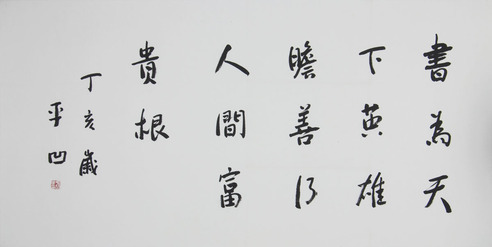 書為天
下英雄
膽善
人間富
貴根
丁亥歲
平凹